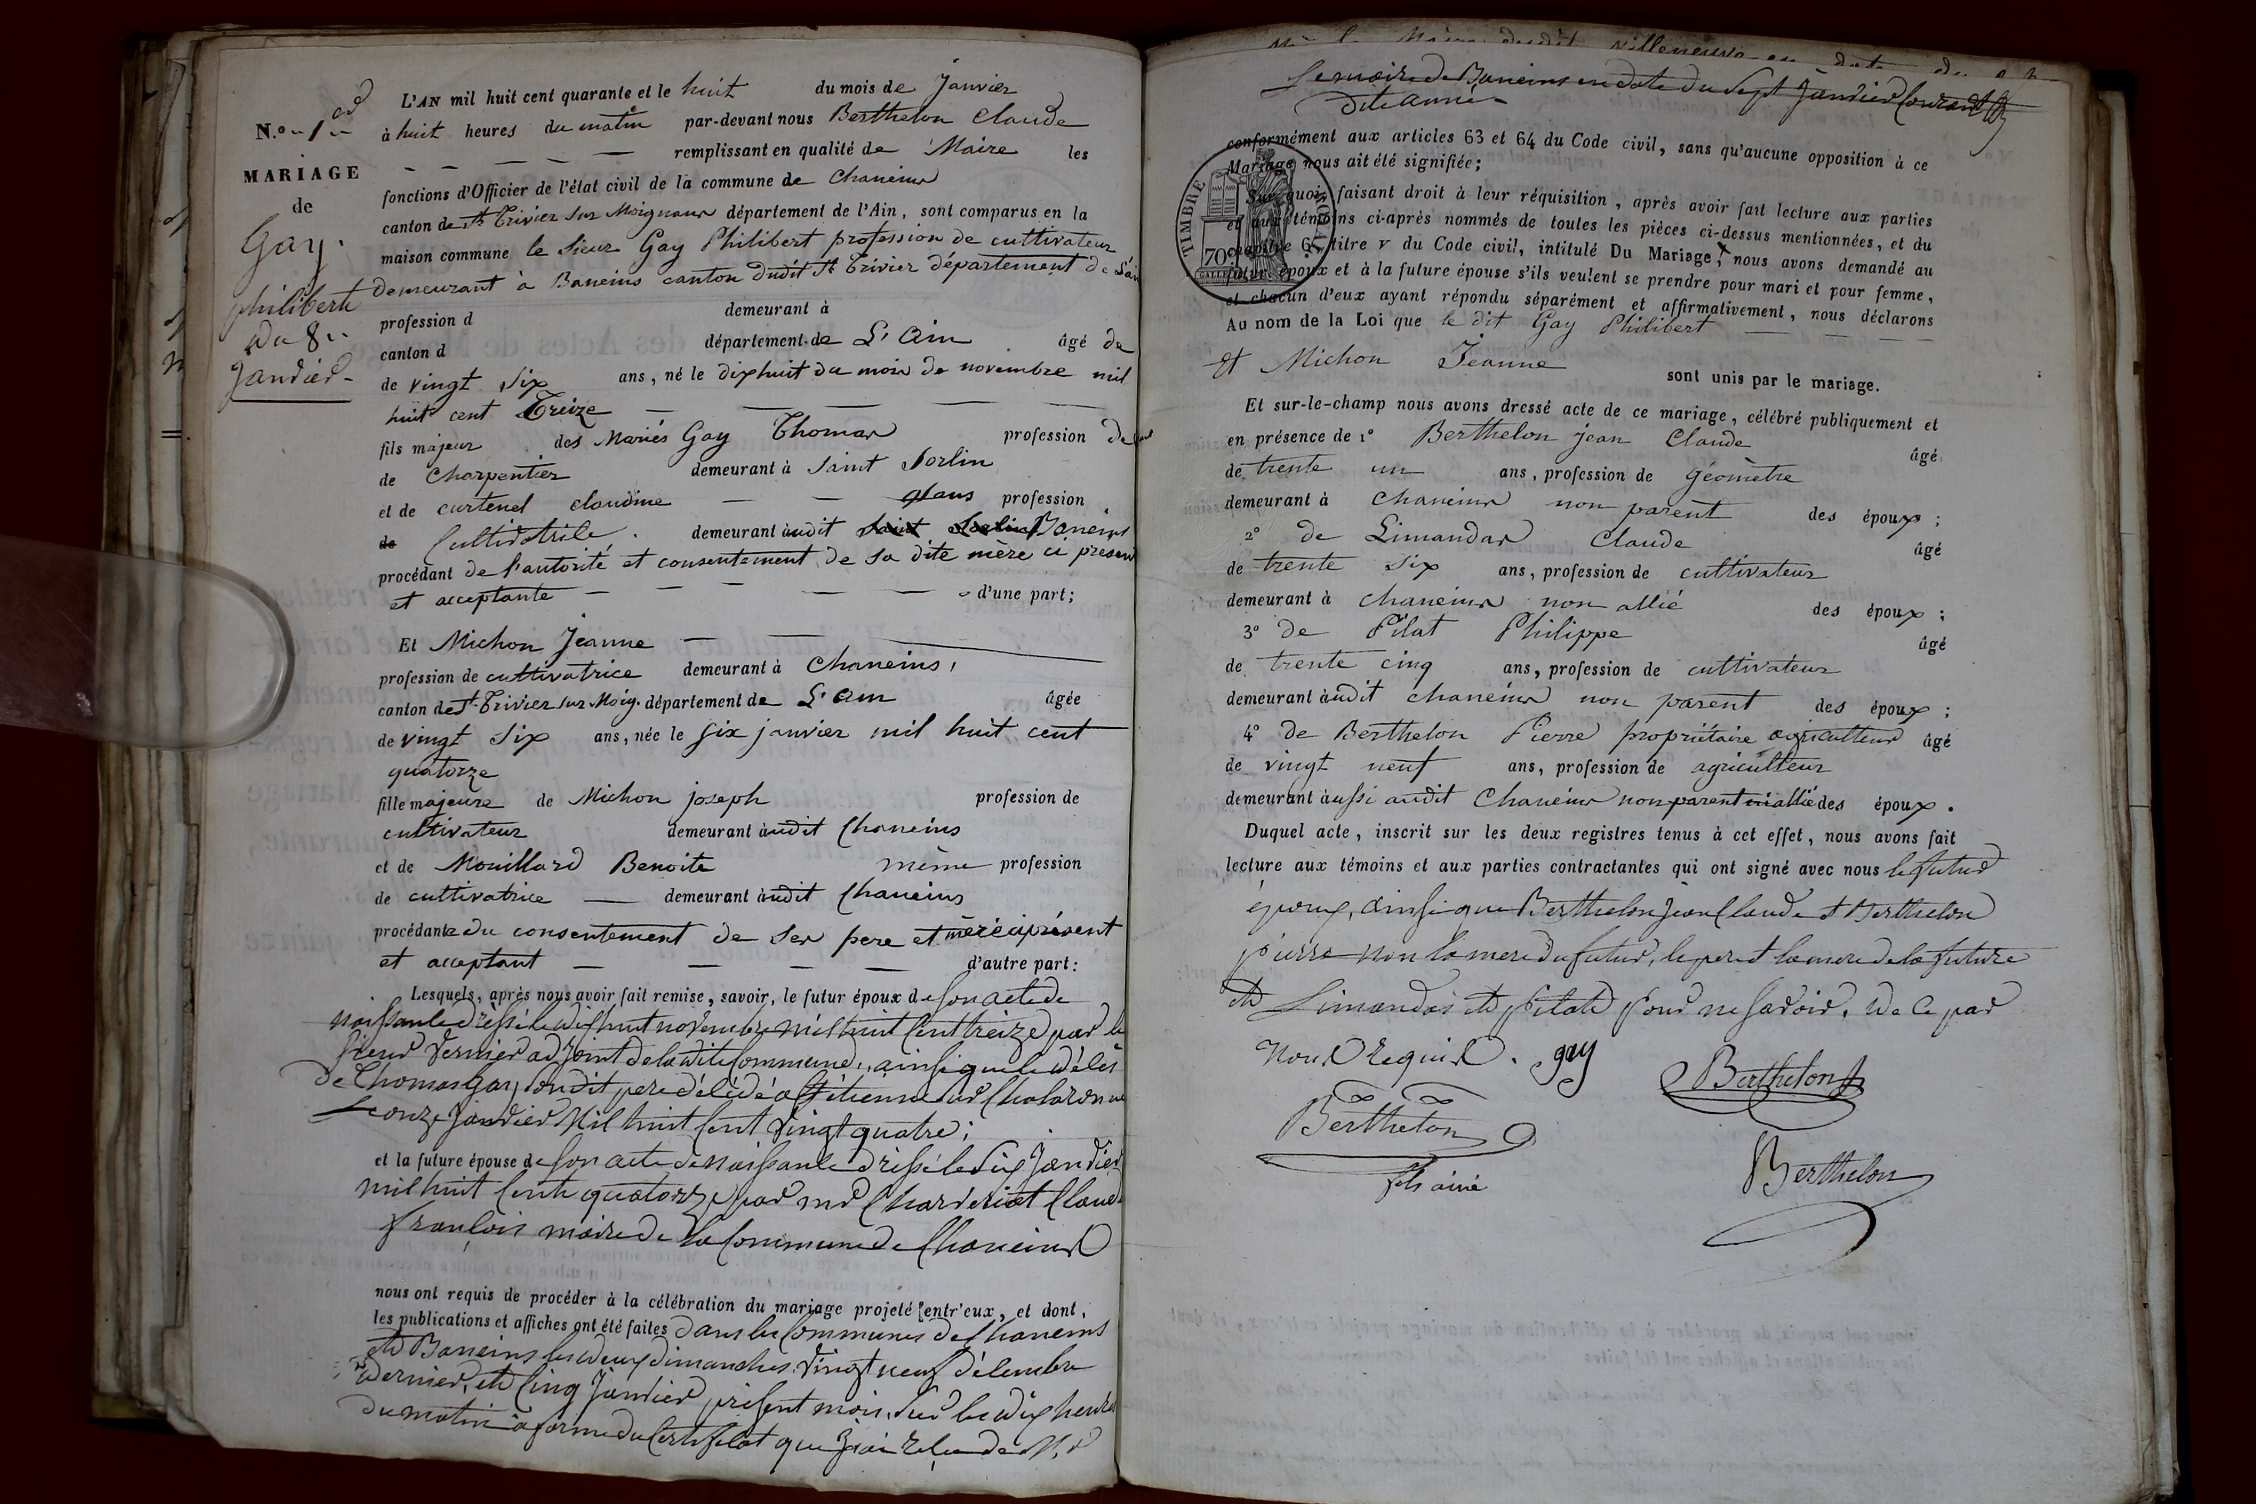 N.º 1er
MARIAGE
de
Gay
philibert
du 8
Janvier
L'AN mil huit cent quarante et le huit du mois de Janvier
à huit heures du matin par-devant nous Berthelon Claude
remplissant en qualité de Maire les
fonctions d'Officier de l'état civil de la commune de Chaneins
canton de St Trivier sur Moignans département de l'Ain, sont comparus en la
maison commune le sieur Gay Philibert profession de cultivateur
demeurant à Baneins canton dudit St Trivier département de l'ain
profession d demeurant à
canton d département de L'Ain âgé de
de vingt six ans, né le dixhuit du mois de novembre mil
huit cent Treize
fils majeur des Mariés Gay Thomas profession de
de Charpentier demeurant à Saint Sorlin
et de curtenel claudine sans profession
de Cultivatrice demeurant audit Saint Sorlin Baneins
procédant de l'autorité et consentement de sa dite mère ci présen
et acceptante d'une part;
Et Michon Jeanne
profession de cultivatrice demeurant à Chaneins,
canton de St Trivier sur Moig. département de L'Ain âgée
de vingt six ans, née le six janvier mil huit cent
quatorze
fille majeure de Michon joseph profession de
cultivateur demeurant audit Chaneins
et de Mouillard Benoite même profession
de cultivatrice demeurant audit Chaneins
procédante du consentement de ses pere et mère ci présent
et acceptant d'autre part:
Lesquels, après nous avoir fait remise, savoir, le futur époux de son acte de
naissance dressé le dixhuit novembre mil huit cent treize par le
sieur Vernier adjoint de la dite Commune, ainsi que le décès
de Thomas Gay son dit pere décédé a St étienne sur Chalaronne
Le onze Janvier Mil huit cent vingt quatre;
et la future épouse de son acte de naissance dressé le six Janvier
mil huit cent quatorze par mr Charderiat Claude
françois maire de la Commune de Chaneins
nous ont requis de procéder à la célébration du mariage projeté entr'eux, et dont,
les publications et affiches ont été faites dans les Communes de Chaneins
et Baneins les deux dimanches vingt neuf décembre
dernier, et cinq Janvier présent mois, sur les dix heures
du matin a forme du Certificat que J'ai reçu de Mr
Le maire de Baneins en date du sept Janvier Courant
dite année
conformément aux articles 63 et 64 du Code civil, sans qu'aucune opposition à ce
Mariage nous ait été signifiée;
Sur quoi, faisant droit à leur réquisition, après avoir fait lecture aux parties
et aux témoins ci-après nommés de toutes les pièces ci-dessus mentionnées, et du
chapitre 6, titre v du Code civil, intitulé Du Mariage, nous avons demandé au
futur époux et à la future épouse s'ils veulent se prendre pour mari et pour femme,
et chacun d'eux ayant répondu séparément et affirmativement, nous déclarons
TIMBRE ROYAL
70c
Au nom de la Loi que le dit Gay Philibert
et Michon Jeanne
sont unis par le mariage.
Et sur-le-champ nous avons dressé acte de ce mariage, célébré publiquement et
en présence de 1º Berthelon jean Claude âgé
de trente un ans, profession de géomètre
demeurant à Chaneins non parent des époux;
2º de Limandas Claude âgé
de trente six ans, profession de cultivateur
demeurant à chaneins non allié des époux;
3º de Pilat Philippe âgé
de trente cinq ans, profession de cultivateur
demeurant audit chaneins non parent des époux;
4º de Berthelon Pierre propriétaire agriculteur âgé
de vingt neuf ans, profession de agriculteur
demeurant aussi audit Chaneins non parent ni allié des époux.
Duquel acte, inscrit sur les deux registres tenus à cet effet, nous avons fait
lecture aux témoins et aux parties contractantes qui ont signé avec nous le futur
époux, ainsi que Berthelon Jean Claude et Berthelon
pierre non la mere du futur, le pere et la mere de la future
et Limandas et pilat pour ne savoir, de ce par
Nous requis. gay
Berthelon
Berthelon
fils ainé
Berthelon